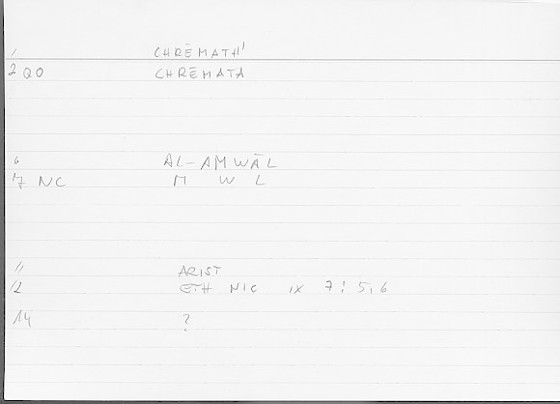 1 CHRĒMATH'
2 QO CHRĒMATA
6 AL-AMWĀL
7 NC M W L
11 ARIST
12 ETH NIC IX 7: 5,6
14 ?